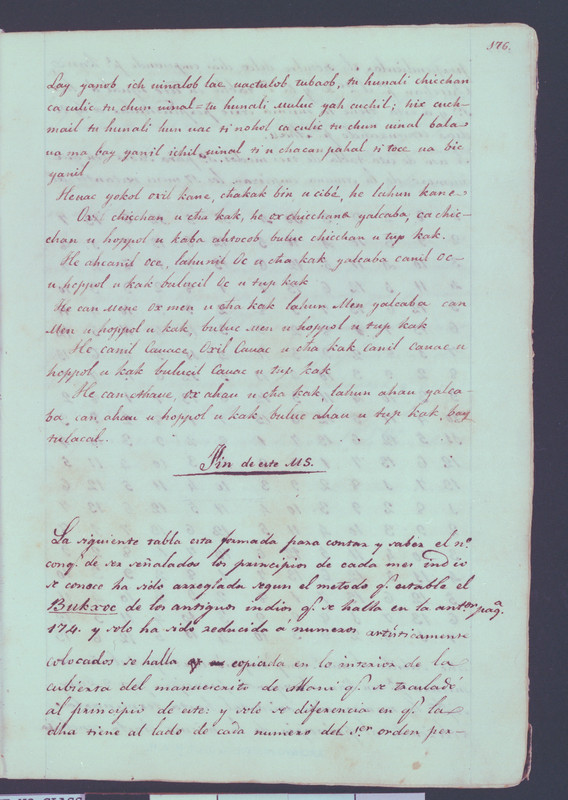 176.
Lay yanob ich uinalob lae uactulob tubaob, tu hunali chicchan
ca culic tu chun uinal = tu hunali muluc yah cuchil; hix cuch-
mail tu hunali hun uac ti nohol ca culic tu chun uinal bala
ua ma bay yanil ichil uinal ti u chacanpahal ti toce ua bic
yanil
Heuac yokol oxil kane, chakak bin u cibé, he lahun kane
Oxi chicchan u cha kak, he ox chicchane yalcaba, ca chic-
chan u hoppol u kaba ahtocob buluc chicchan u tup kak.
He ahcanil oce, lahunil Oc u cha kak yalcaba canil Oc
u hoppol u kak bulucil Oc u tup kak
He can Mene Ox men u cha kak lahun Men yalcaba can
Men u hoppol u kak, buluc Men u hoppol u tup kak
He canil Cauace, Oxil Cauac u cha kak canil Cauac u
hoppol u kak bulucil Cauac u tup kak
He can Ahaue, ox ahau u cha kak, lahun ahau yalca-
ba can ahau u hoppol u kak buluc ahau u tup kak, bay
tulacal.
Fin de este MS.
La siguiente tabla esta formada para contar y saber el nº
conq. de ser señalados los principios de cada mes indio
se conoce ha sido arreglada segun el metodo q. estable el
Bukxoc de los antiguos indios q. se halla en la antor pag.ª
174. y solo ha sido reducida á numeros artisticamente
colocados se halla copiada en lo interior de la
cubierta del manuscrito de Mani q. se trasladó
al principio de este: y solo se diferencia en q. la
dha tiene al lado de cada numero del 1.er orden per-